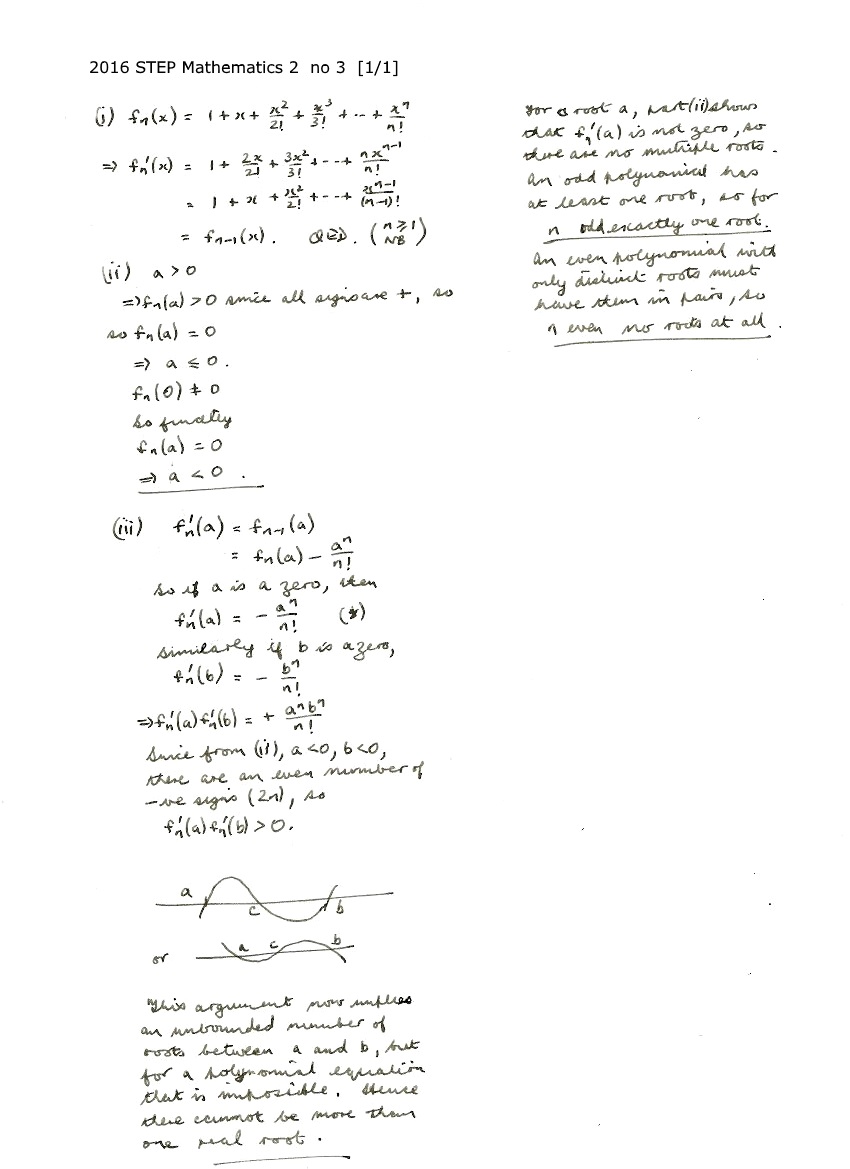 2016 STEP Mathematics 2 no 3 [1/1]
(i) fₙ(x) = 1 + x + x²/2! + x³/3! + --- + xⁿ/n!
⇒ fₙ'(x) = 1 + 2x/2! + 3x²/3! + --- + nxⁿ⁻¹/n!
= 1 + x + x²/2! + --- + xⁿ⁻¹/(n-1)!
= fₙ₋₁(x). QED. (n ≥ 1 NB)
(ii) a > 0
⇒ fₙ(a) > 0 since all signs are +, so
so fₙ(a) = 0
⇒ a ≤ 0.
fₙ(0) ≠ 0
So finally
fₙ(a) = 0
⇒ a < 0.
(iii) fₙ'(a) = fₙ₋₁(a)
= fₙ(a) - aⁿ/n!
So if a is a zero, then
fₙ'(a) = - aⁿ/n! (*)
similarly if b is a zero,
fₙ'(b) = - bⁿ/n!
⇒ fₙ'(a)fₙ'(b) = + aⁿbⁿ/n!
Since from (ii), a<0, b<0,
there are an even number of
-ve signs (2n), so
fₙ'(a)fₙ'(b) > 0.
a c b
or a c b
This argument now implies
an unbounded number of
roots between a and b, but
for a polynomial equation
that is imposible. Hence
there cannot be more than
one real root.
For a root a, part (ii) shows
that fₙ'(a) is not zero, so
there are no multiple roots.
An odd polynomial has
at least one root, so for
n odd exactly one root.
An even polynomial with
only distinct roots must
have them in pairs, so
n even no roots at all.